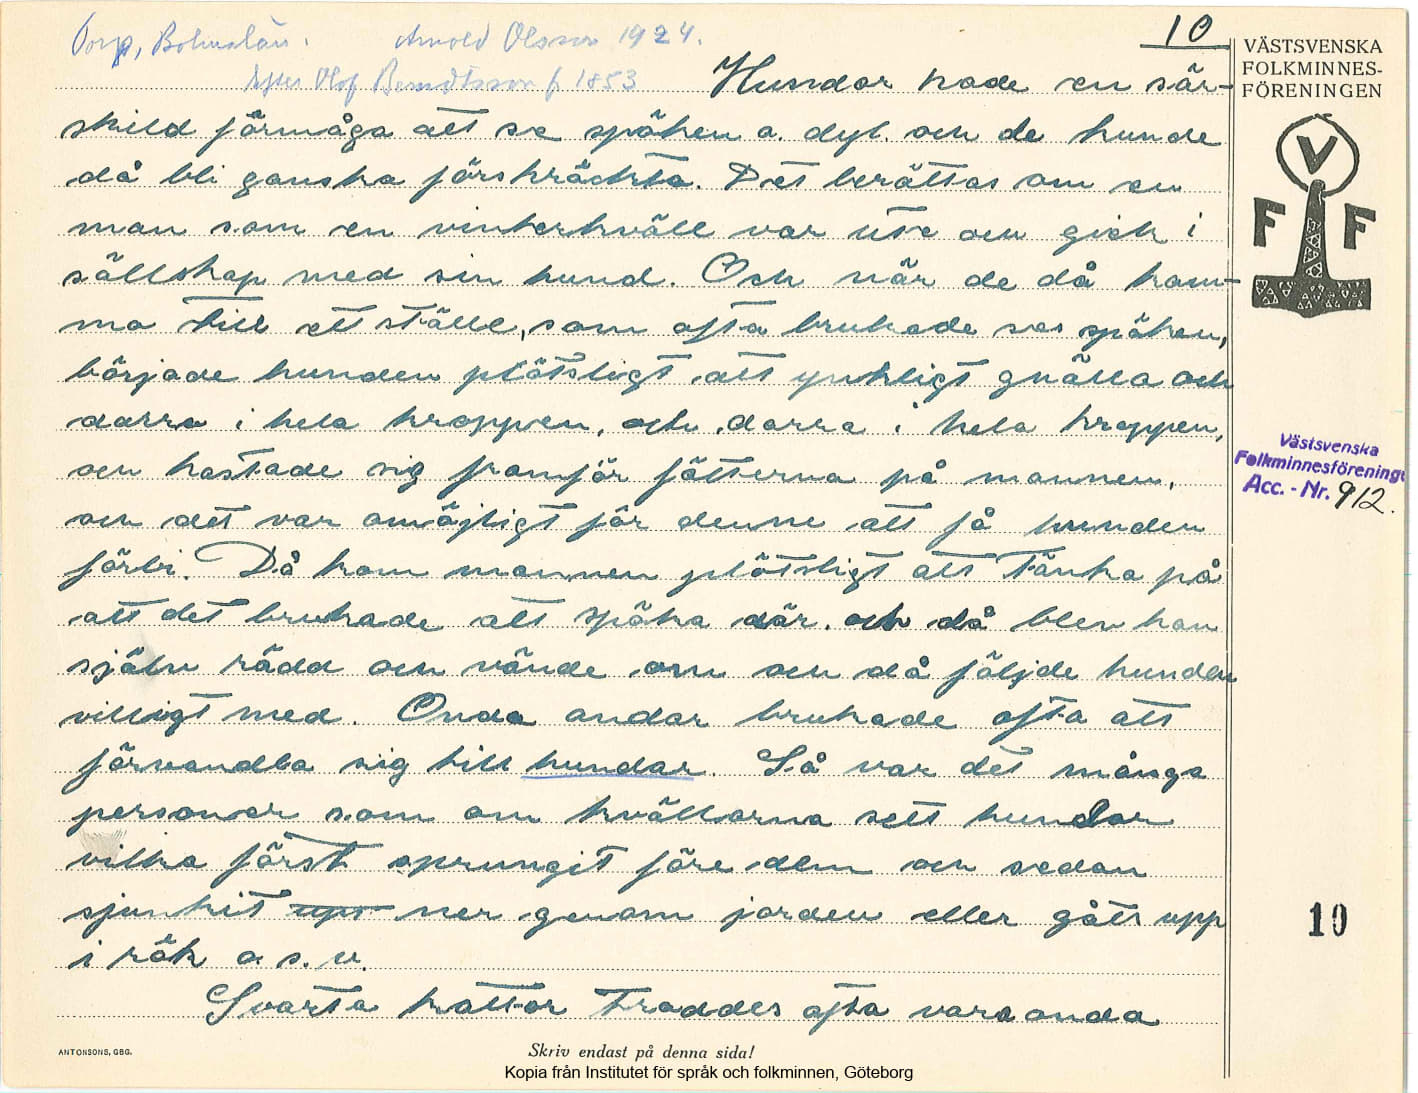 Torp, Bohuslän. Arnold Olsson 1924.
10
Efter Olof Berndtsson f 1853
VÄSTSVENSKA
FOLKMINNES-
FÖRENINGEN
V
F F
Hundar hade en sär-
skild förmåga att se spöken o. dyl. och de kunde
då bli ganska förskräckta. Det berättas om en
man som en vinterkväll var ute och gick i
sällskap med sin hund. Och när de då kom-
mo till ett ställe, som ofta brukade ses spöken,
började hunden plötsligt att ynkligt gnälla och
darra i hela kroppen, och darra i hela kroppen,
och kastade sig framför fötterna på mannen,
och det var omöjligt för denne att få hunden
förbi. Då kom mannen plötsligt att tänka på
att det brukade att spöka där. och då blev han
själv rädd och vände om och då följde hunden
villigt med. Onda andar brukade ofta att
förvandla sig till hundar. Så var det många
personer som om kvällarna sett hundar
vilka först sprungit före dem och sedan
sjunkit upp ner genom jorden eller gått upp
i rök o. s. v.
Svarta kattor troddes ofta vara onda
Västsvenska
Folkminnesförening
Acc. - Nr. 912.
10
ANTONSONS, GBG.
Skriv endast på denna sida!
Kopia från Institutet för språk och folkminnen, Göteborg